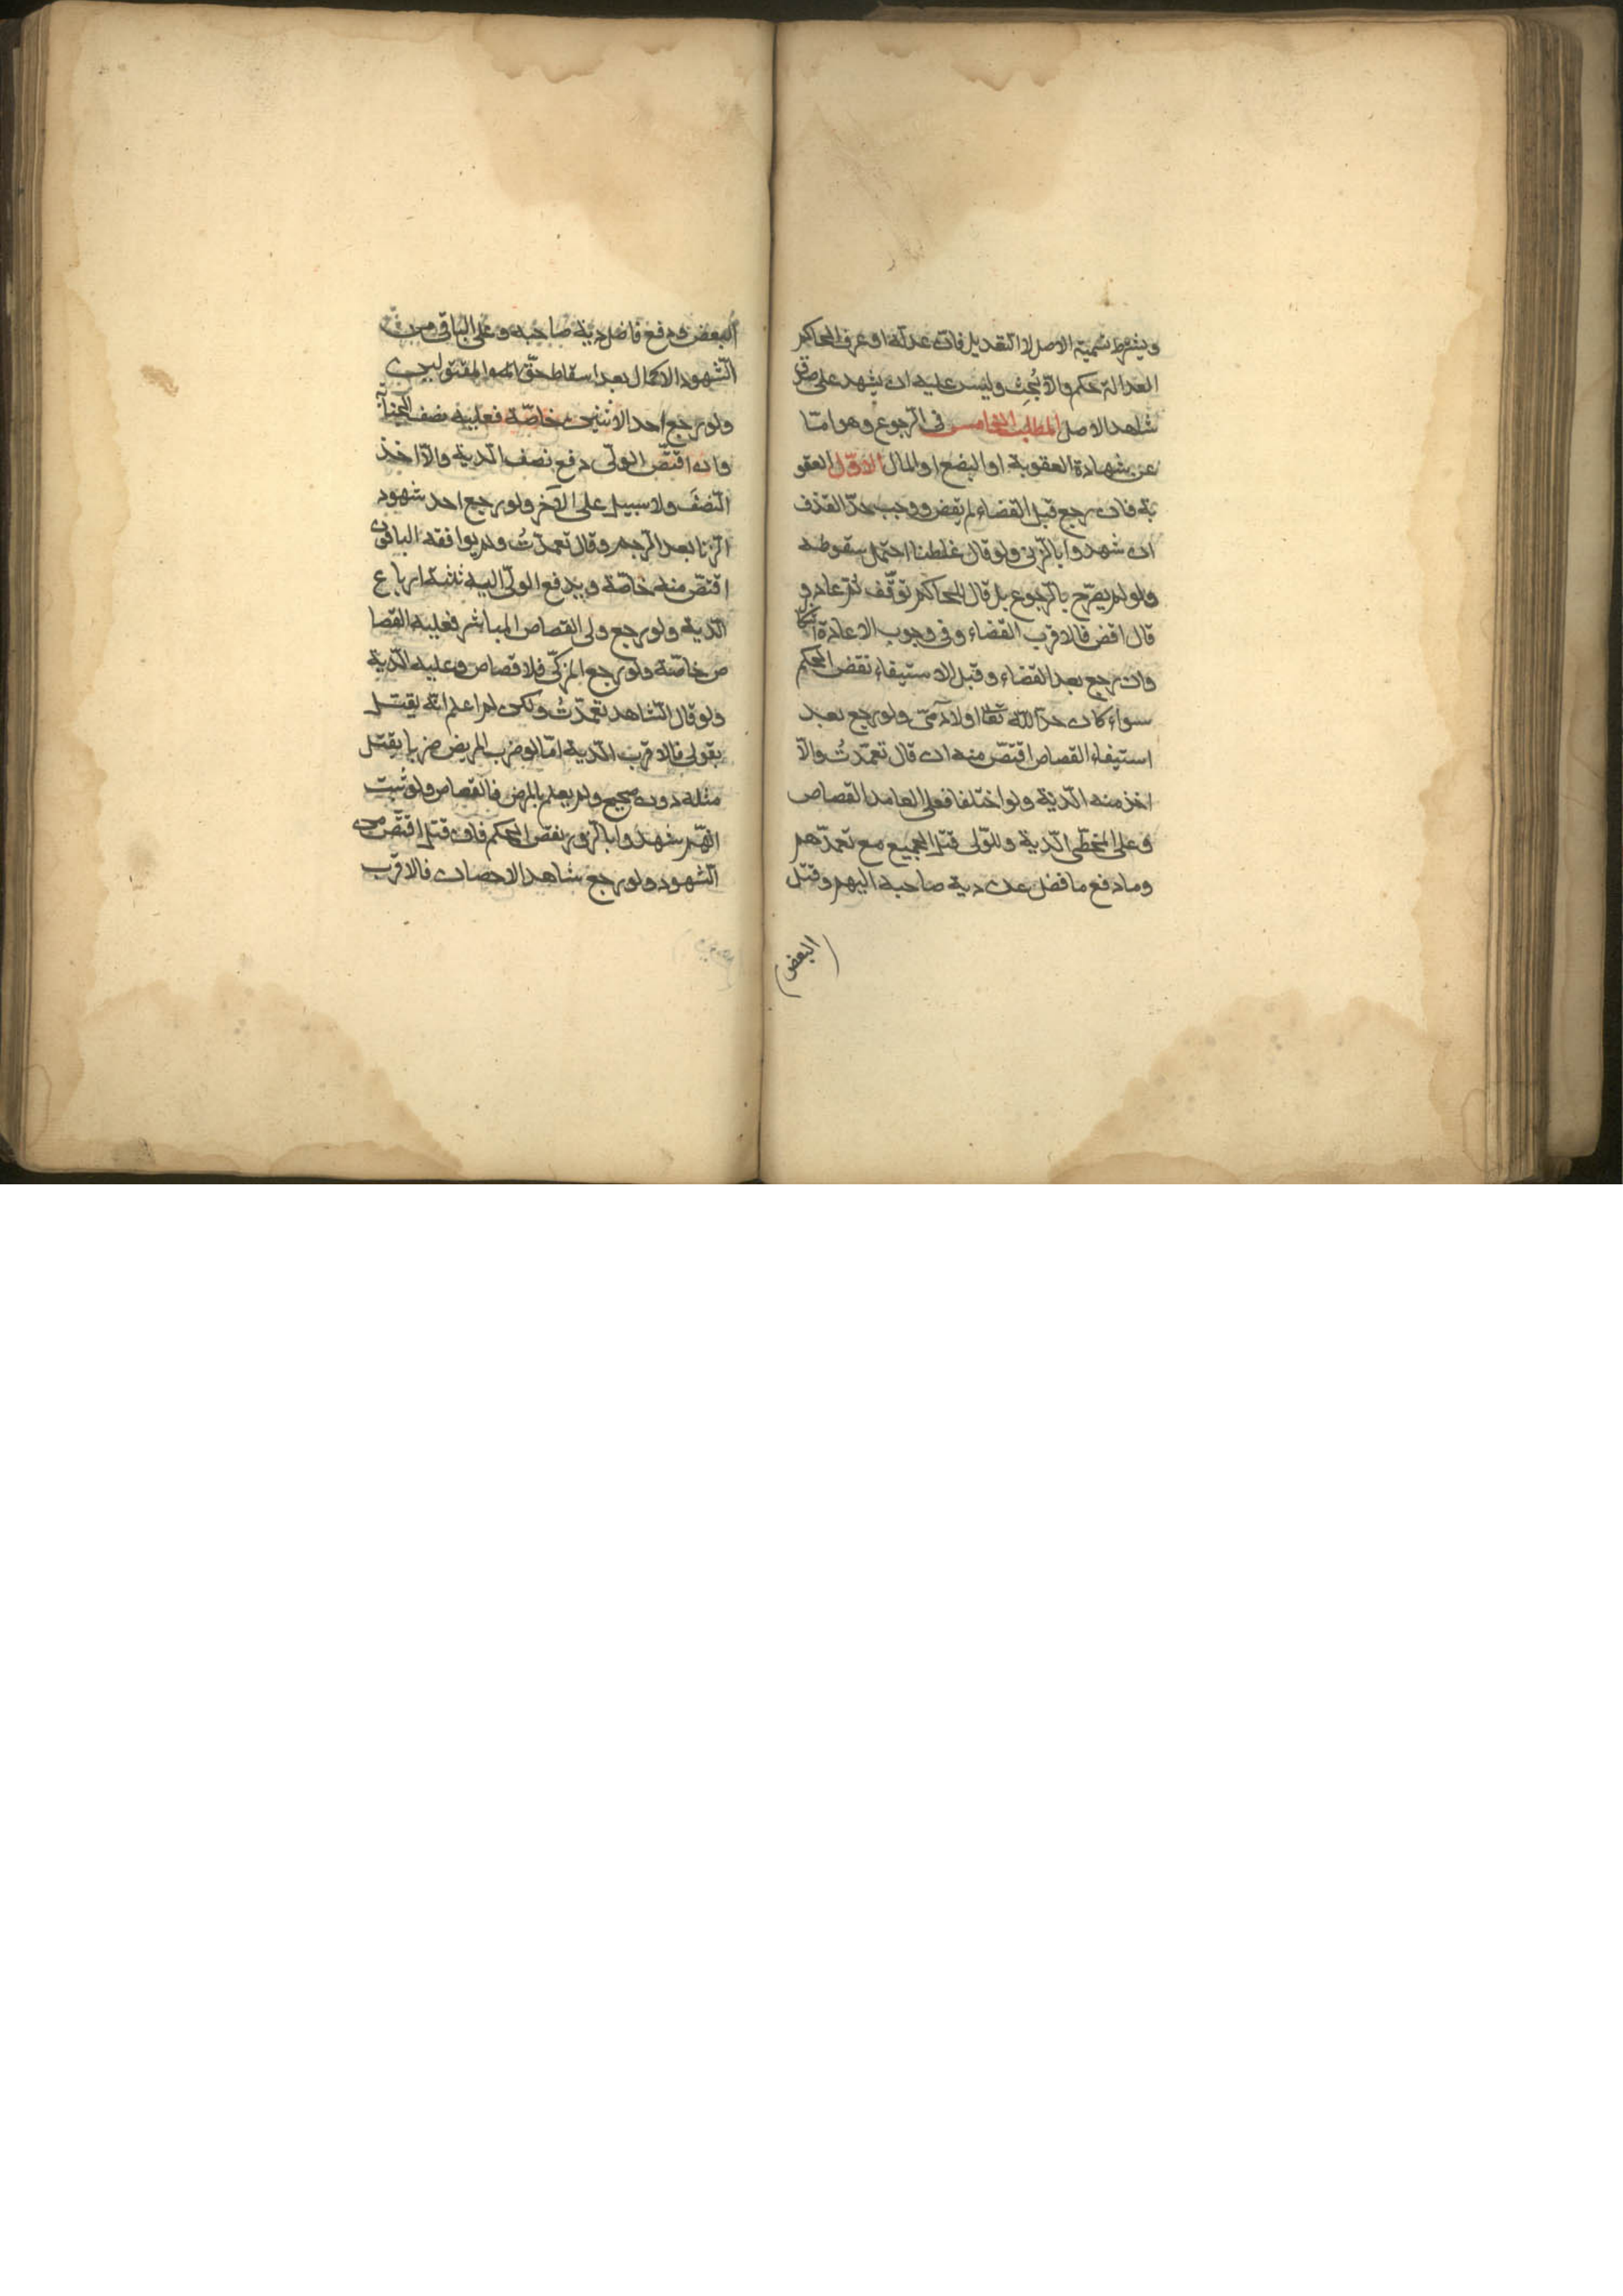 ويشترط تسمية الاصل لا التعديل فان عدله او عرف الحاكم
العدالة حكم والا بحث وليس عليه ان يشهد على صدق
شاهد الاصل المطلب الخامس فى الرجوع وهو امّا
عن شهادة العقوبة او البضع او المال الاوّل العقو
بة فان رجع قبل القضاء لم يقض ووجب حدّ القذف
ان شهدوا بالزنى ولو قال غلطنا احتمل سقوطه
ولو لم يصرّح بالرجوع بل قال للحاكم توقّف ثم عاد و
قال اقض فالاقرب القضاء وفى وجوب الاعادة اشكال
وان رجع بعد القضاء وقبل الاستيفاء نقض الحكم
سواء كان حدّا لله تعالى او لآدمىّ ولو رجع بعد
استيفاء القصاص اقتصّ منه ان قال تعمّدتُ والّا
اخذ منه الدّية ولو اختلفا فعلى العامد القصاص
وعلى المخطى الدّية وللولى قتل الجميع مع تعمدّهم
وما دفع ما فضل عن دية صاحبه اليهم وقتل
البعض
البعض ودفع فاضل دية صاحبه وعلى الباقى من
الشهود الاكمال بعد اسقاط حقّ المقتولين
ولو رجع احد الاثنين خاصّة فعليه نصف الجناية
وان اقتصّ الولىّ دفع نصف الدية والّا اخذ
النصفَ ولا سبيل على الآخر ولو رجع احد شهود
الزنا بعد الرجم وقال تعمدتُ ولم يوافقه الباقون
اقتصّ منه خاصّة ويدفع الولىّ اليه ثلثة ارباع
الدّية ولو رجع ولى القصاص المباشر فعليه القصا
ص خاصّة ولو رجع المزكّى فلا قصاص وعليه الدّية
ولو قال الشاهد تعمّدتُ ولكن لم اعلم انّه يقتل
بقولى فالاقرب الدّية امّا لو ضرب المريض ضربا يقتل
مثله دون صحيح ولم يعلم بالمرض فالقصاص ولو ثبت
انّهم شهدوا بالزور نقض الحكم فان قتل اقتصّ من
الشهود ولو رجع شاهد الاحصان فالاقرب